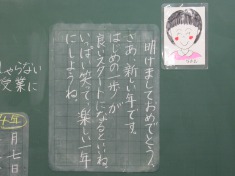 明けましておめでとう。
さあ、新しい年です。
はじめの一歩が
良いスタートになるといいね。
いっぱい笑って、楽しい一年
にしようね。
しゃらない
授業に
4年
一月七日